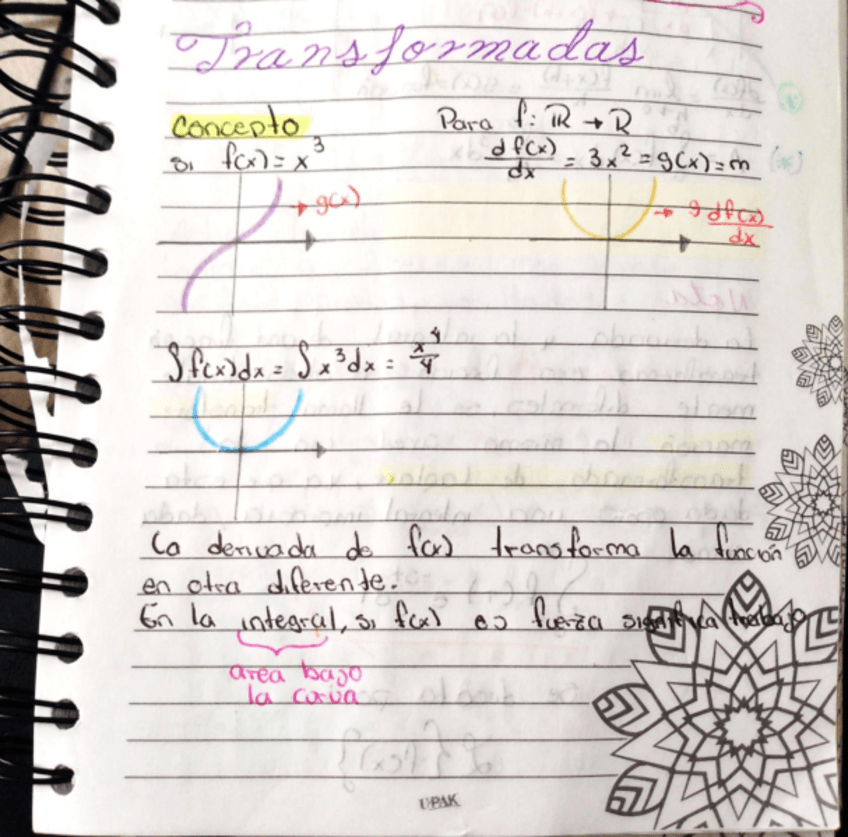 Transformadas
Concepto
Para f: ℝ → ℝ
si f(x) = x³
df(x)/dx = 3x² = g(x) = m
→ g(x)
→ g df(x)/dx
∫f(x)dx = ∫x³dx = x⁴/4
La derivada de f(x) transforma la función
en otra diferente.
En la integral, si f(x) es fuerza significa trabajo
area bajo
la curva